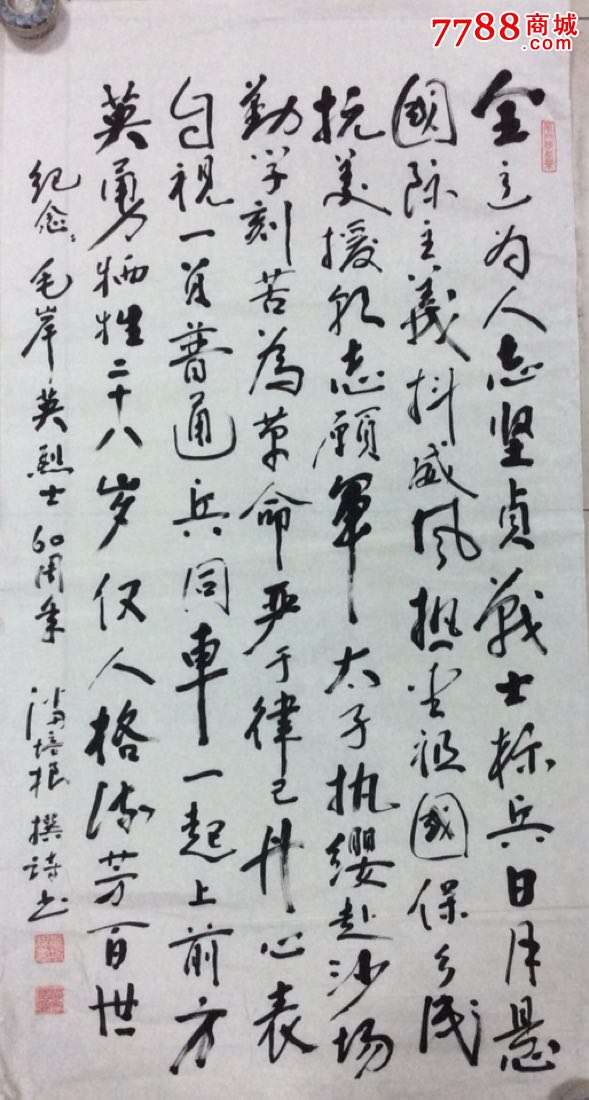 7788商城
.com
全立为人志坚贞战士标兵日月悬
國际主義抖威风担当祖國保乡民
抗美援朝志願軍太子执缨赴沙场
勤学刻苦為革命严于律己丹心表
自视一员普通兵同車一起上前方
英勇牺牲二十八岁仅人格流芳百世
纪念：毛岸英烈士60周年 潘培根 撰诗书